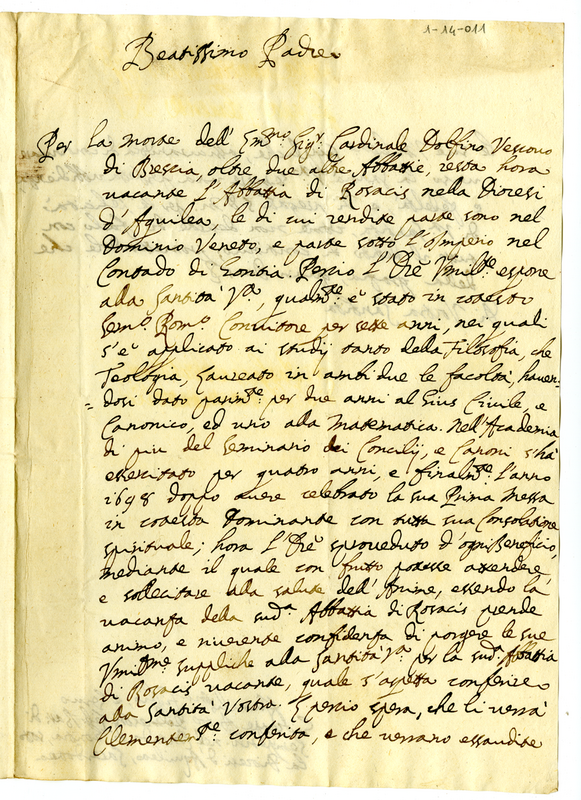 1-14-011
Beatissimo Padre
Per la morte dell' Em̃no Sigr. Cardinale Dolfino Vescouo
di Brescia, oltre due altre Abbatie, resta hora
uacante l'Abbatia di Rosacis nella Diocesi
d'Aquilea, le di cui rendite parte sono nel
Dominio Veneto, e parte sotto l'Imperio nel
Contado di Goritia. Percio l'Ore Vmilte espone
alla Santità Va, qualmte e' stato in codesto
Semo Romo Conuitore per sette anni, nei quali
s'e' applicato ai studij tanto della Filosofia, che
Teologia, Laureato in ambidue le facoltà, hauen-
=dosi dato parimte: per due anni al Gius Ciuile, e
Canonico, ed uno alla Matematica. Nell'Academia
di piu del Seminario dei Concilij, e Canoni s'ha
essercitato per quatro anni, e finalmte: l'anno
1698 doppo auere celebrato la sua Prima Messa
in codesta Dominante con tutta sua Consolatione
spirituale; hora l'Ore sproueduto d'ogni Beneficio,
mediante il quale con frutto potesse attendere,
e sollecitare alla salute dell'Anime, essendo la
uacanza della suda Abbatia di Rosacis prende
animo, e riuerente confidenza di porgere le sue
Vmilme suppliche alla Santità Va per la suda Abbatia
di Rosacis uacante, quale s'aspetta conferire
alla Santità Vostra. E percio spera, che li uerrà
Clementemte conferita, e che uerrano essaudite